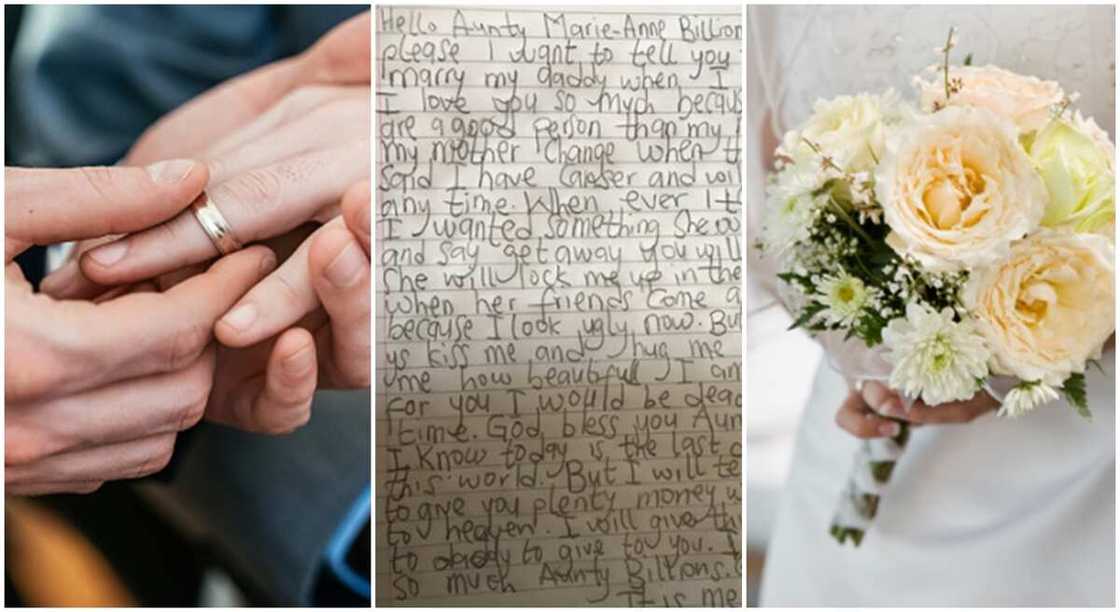 Hello Aunty Marie-Anne Billion
please I want to tell you
marry my daddy when I
I love you so much becaus
are a good person than my
my mother change when t
said I have cancer and wil
any time. When ever I t
I wanted something She wo
and say get away you will
She will lock me up in the
when her friends come a
because I look ugly now. Bu
us kiss me and hug me
me how beautiful I am
for you I would be dead
time. God bless you Aun
I know today is the last d
this world. But I will te
to give you plenty money w
to heaven. I will give thi
to daddy to give to you. I
so much Aunty Billions.
It is me